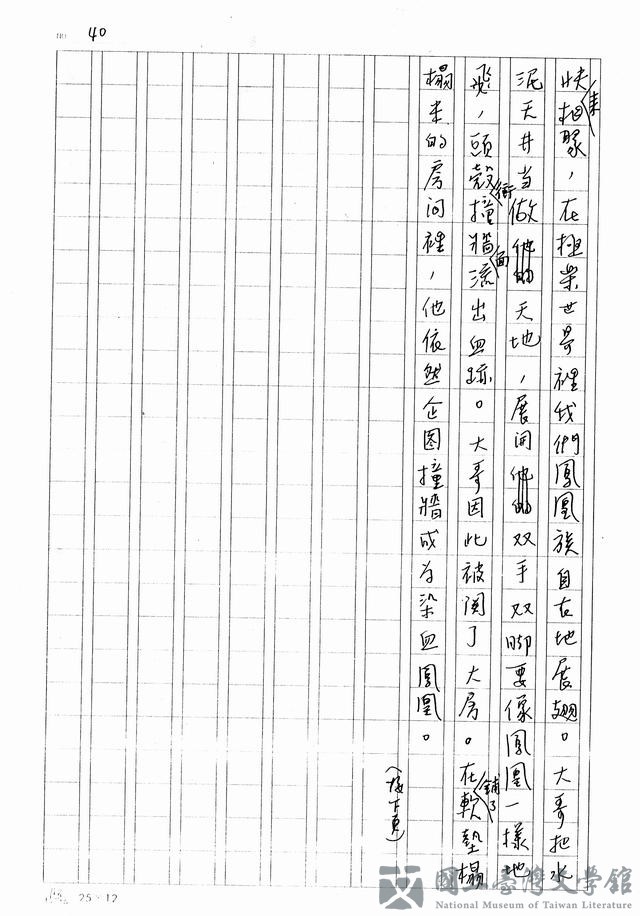 40
快來相聚，在極樂世界裡我們鳳凰族自在地展翅。大哥把水
泥天井当做他的天地，展開他的双手双脚要像鳳凰一樣地
飛，頭殼衝撞牆面流出血跡。大哥因此被関了大房。在鋪了軟墊榻
榻米的房间裡，他依然企图撞牆成为染血鳳凰。
(接下頁)
25×12
國立臺灣文學館
National Museum of Taiwan Literature